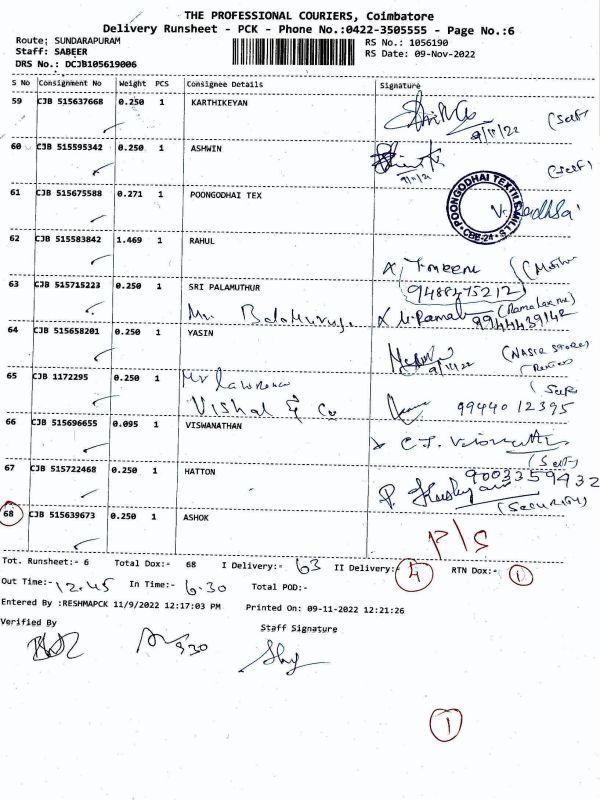 THE PROFESSIONAL COURIERS, Coimbatore
Delivery Runsheet - PCK - Phone No.:0422-3505555 - Page No.:6
Route: SUNDARAPURAM
RS No.: 1056190
Staff: SABEER
RS Date: 09-Nov-2022
DRS No.: DCJB105619006
S No Consignment No Weight PCS Consignee Details Signature
59 CJB 515637668 0.250 1 KARTHIKEYAN
9/11/22 (Self)
60 CJB 515595342 0.250 1 ASHWIN
(Self)
61 CJB 515675588 0.271 1 POONGODHAI TEX
POONGODHAI TEXTILE MILLS CBE-24
62 CJB 515583842 1.469 1 RAHUL
9488475212
63 CJB 515715223 0.250 1 SRI PALAMUTHUR
Mr.
9944439142
64 CJB 515658201 0.250 1 YASIN
9/11/22
65 CJB 1172295 0.250 1 Mr Lawrence
Vishal & Co 9944012395
66 CJB 515696655 0.095 1 VISWANATHAN
(Self)
67 CJB 515722468 0.250 1 HATTON
9003359432
(Security)
68 CJB 515639673 0.250 1 ASHOK
P/S
Tot. Runsheet:- 6 Total Dox:- 68 I Delivery:- 63 II Delivery:- 4 RTN Dox:- 1
Out Time:- 12.45 In Time:- 6.30 Total POD:-
Entered By :RESHMAPCK 11/9/2022 12:17:03 PM Printed On: 09-11-2022 12:21:26
Verified By Staff Signature
1